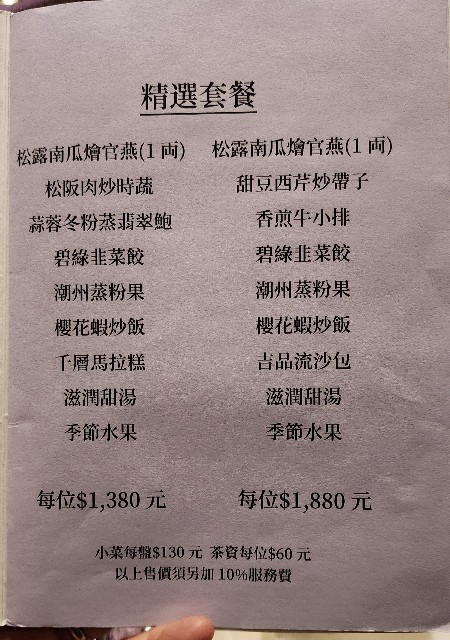 精選套餐
松露南瓜燴官燕(1 両)
松阪肉炒時蔬
蒜蓉冬粉蒸翡翠鮑
碧綠韭菜餃
潮州蒸粉果
櫻花蝦炒飯
千層馬拉糕
滋潤甜湯
季節水果
每位$1,380 元
松露南瓜燴官燕(1 両)
甜豆西芹炒帶子
香煎牛小排
碧綠韭菜餃
潮州蒸粉果
櫻花蝦炒飯
吉品流沙包
滋潤甜湯
季節水果
每位$1,880 元
小菜每盤$130 元 茶資每位$60 元
以上售價須另加 10%服務費